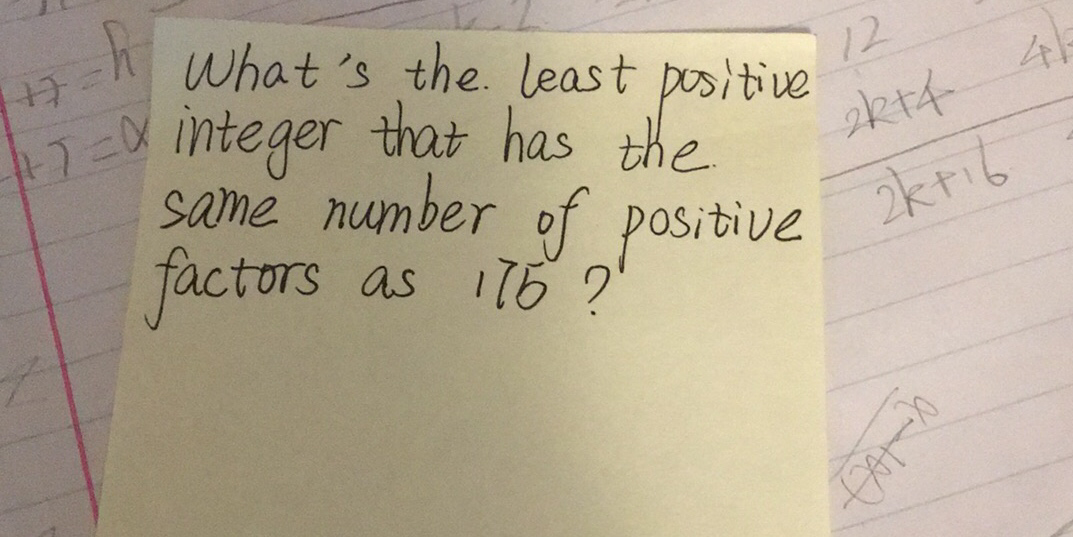 What's the least positive
integer that has the
same number of positive
factors as 175 ?
12
2k+4
2k+16